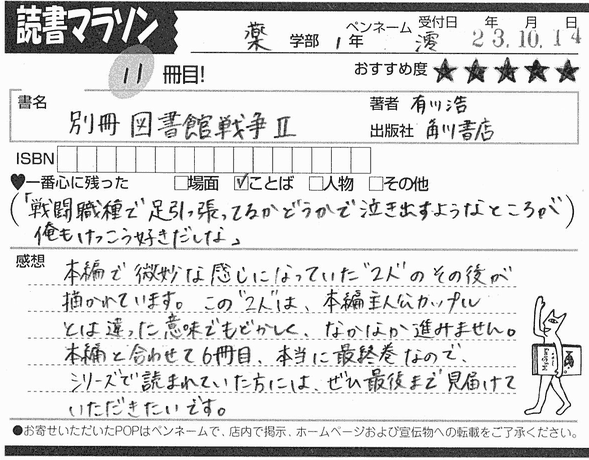 読書マラソン
薬 学部 1年 ペンネーム 澪 受付日 年 月 日 23.10.14
11 冊目! おすすめ度 ★★★★★
書名 別冊 図書館戦争 II
著者 有川浩
出版社 角川書店
ISBN
♥一番心に残った □場面 ☑ことば □人物 □その他
(「戦闘職種で足引っ張ってるかどうかで泣き出すようなところが
俺もけっこう好きだしな」)
感想
本編で微妙な感じになっていた"2人"のその後が
描かれています。この"2人"は、本編主人公カップル
とは違った意味でもどかしく、なかなか進みません。
本編と合わせて6冊目、本当に最終巻なので、
シリーズで読まれていた方には、ぜひ最後まで見届けて
いただきたいです。
●お寄せいただいたPOPはペンネームで、店内で掲示、ホームページおよび宣伝物への転載をご了承ください。